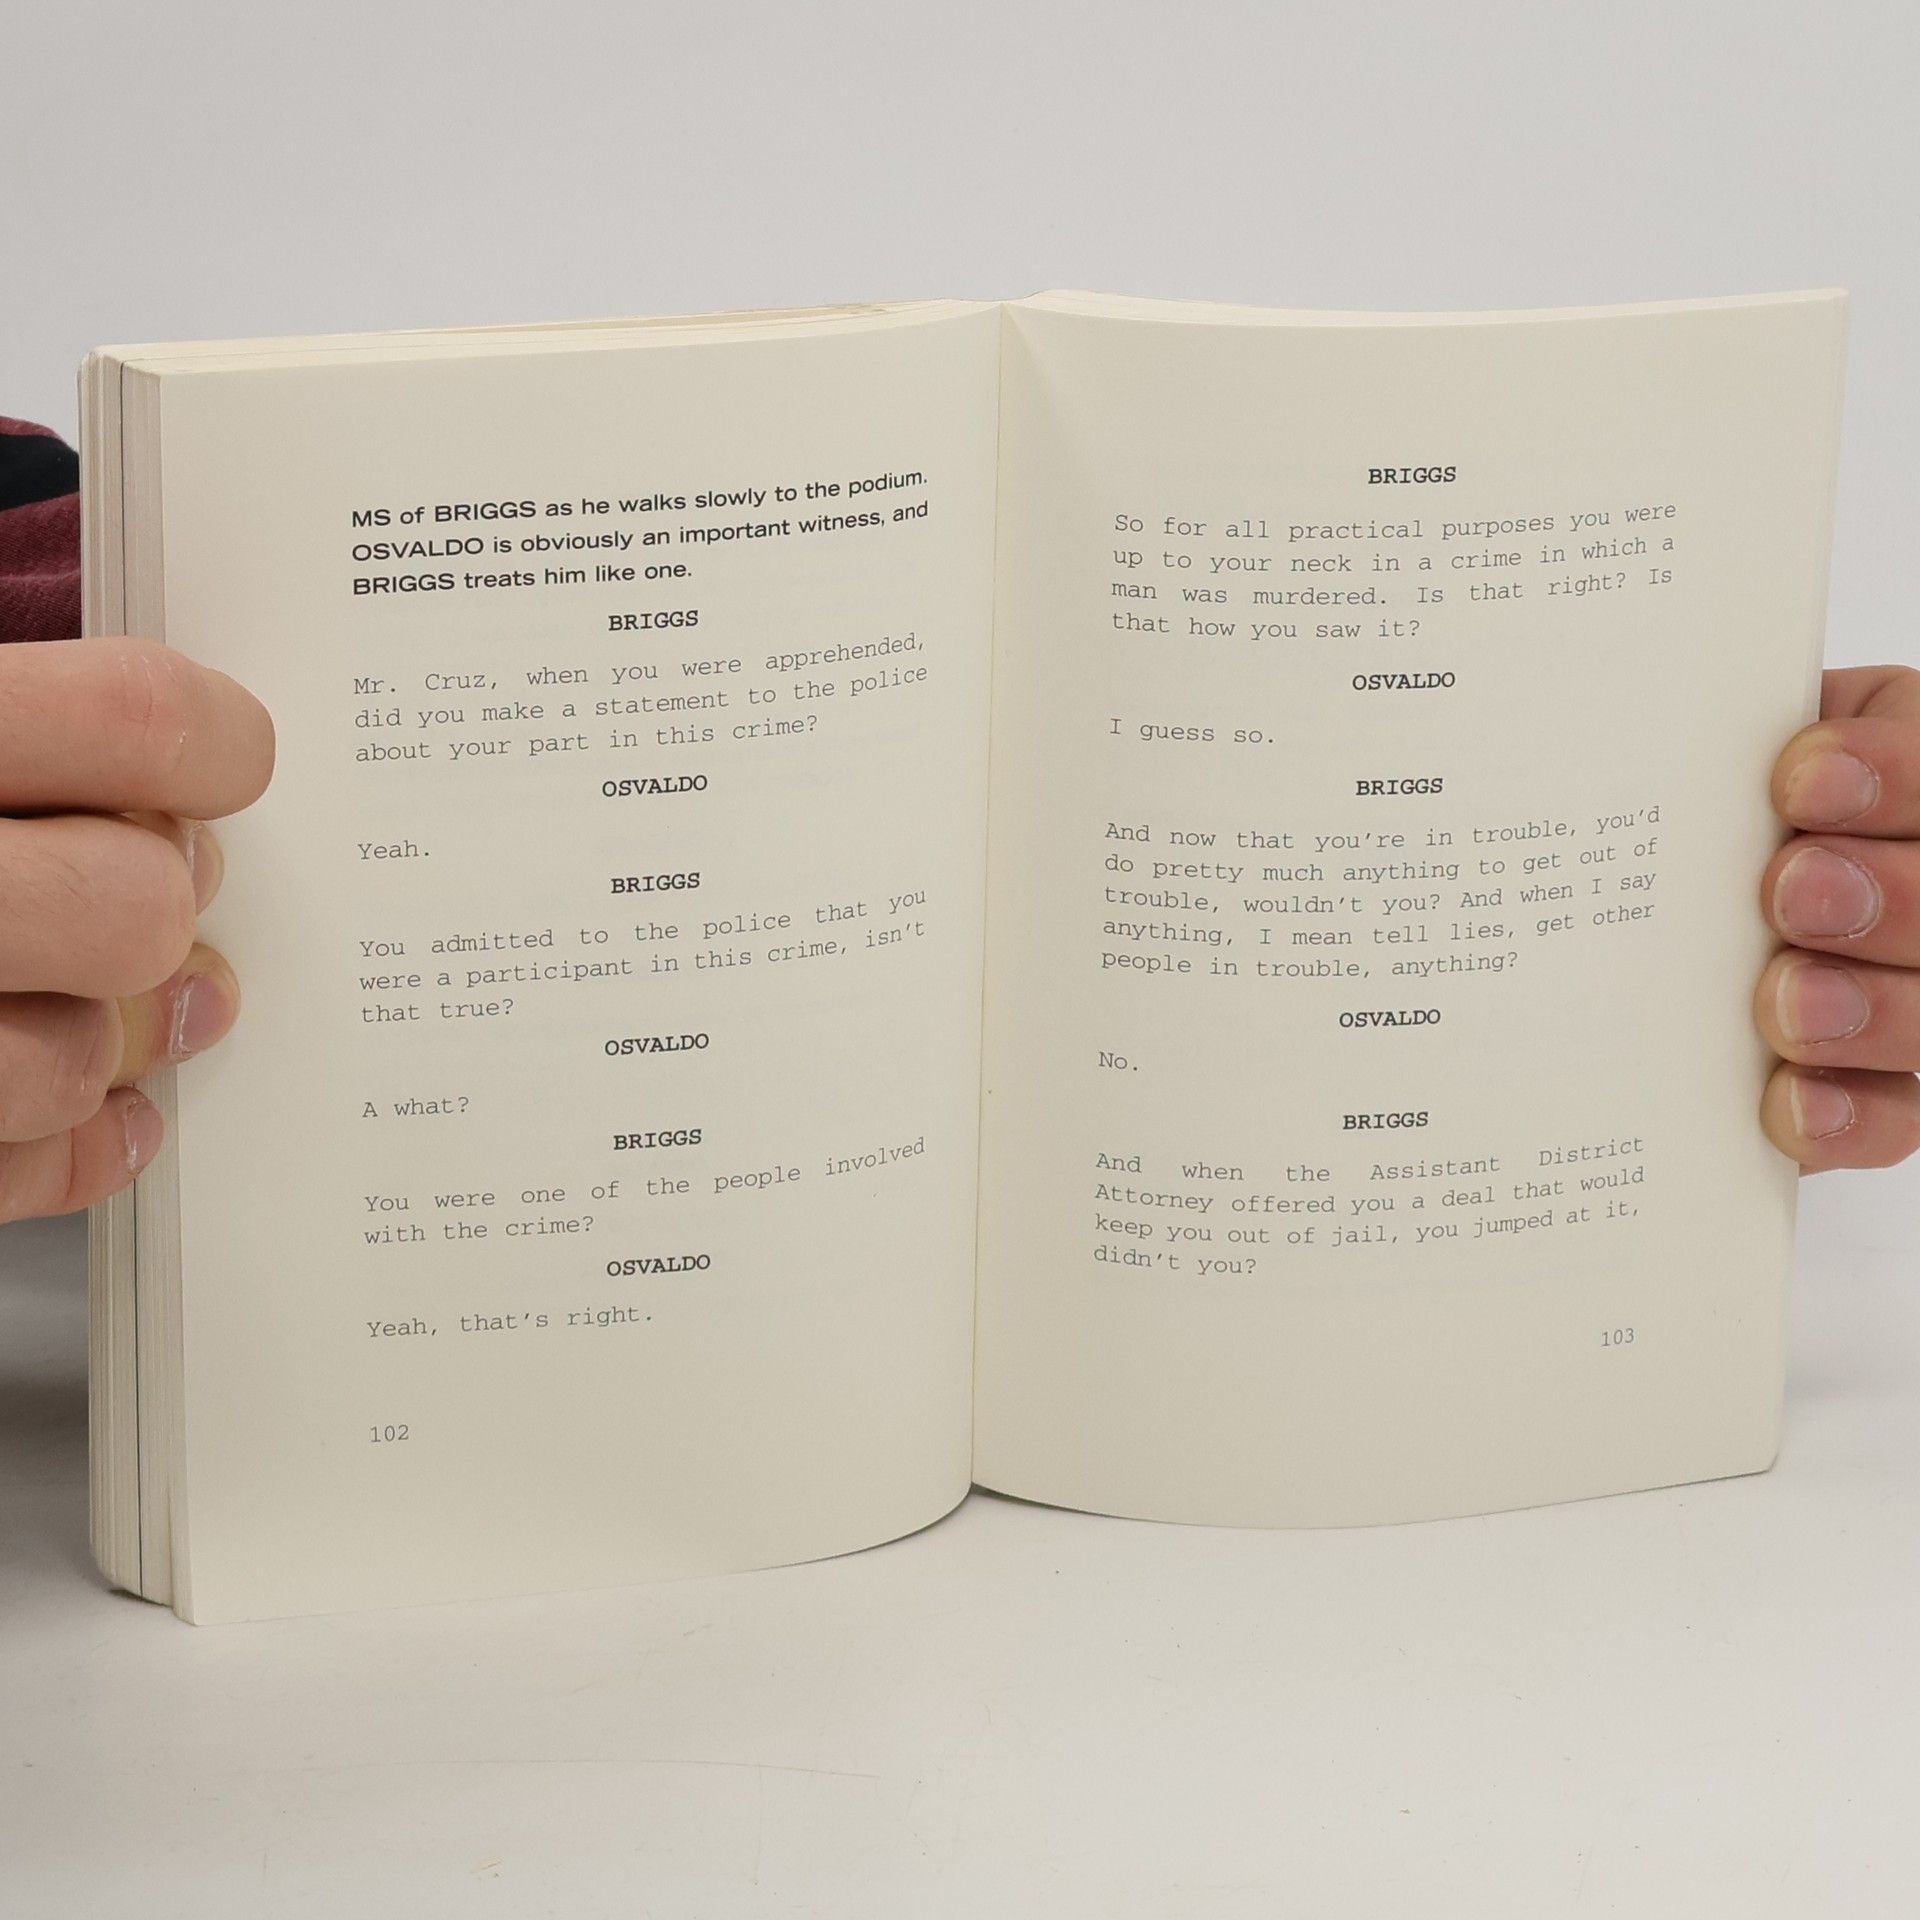 MS of BRIGGS as he walks slowly to the podium.
OSVALDO is obviously an important witness, and
BRIGGS treats him like one.
BRIGGS
Mr. Cruz, when you were apprehended,
did you make a statement to the police
about your part in this crime?
OSVALDO
Yeah.
BRIGGS
You admitted to the police that you
were a participant in this crime, isn't
that true?
OSVALDO
A what?
BRIGGS
You were one of the people involved
with the crime?
OSVALDO
Yeah, that's right.
102
BRIGGS
So for all practical purposes you were
up to your neck in a crime in which a
man was murdered. Is that right? Is
that how you saw it?
OSVALDO
I guess so.
BRIGGS
And now that you're in trouble, you'd
do pretty much anything to get out of
trouble, wouldn't you? And when I say
anything, I mean tell lies, get other
people in trouble, anything?
OSVALDO
No.
BRIGGS
And when the Assistant District
Attorney offered you a deal that would
keep you out of jail, you jumped at it,
didn't you?
103